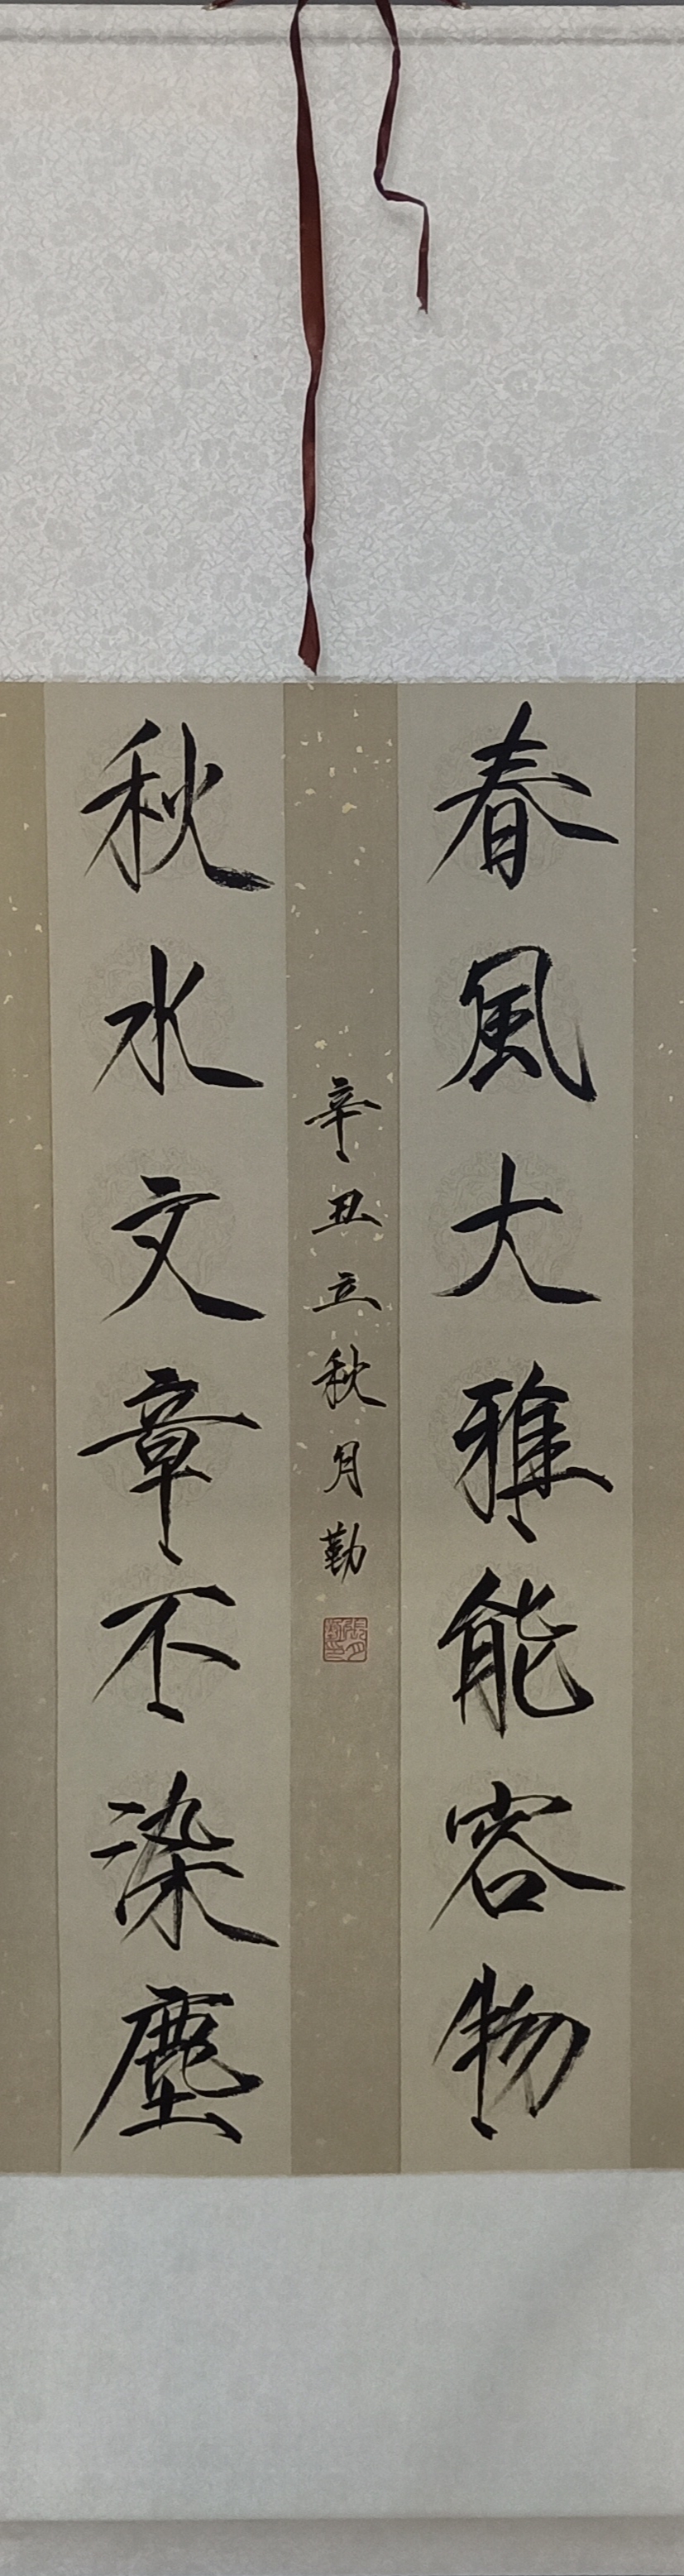 春風大雅能容物
秋水文章不染塵
辛丑立秋月勤